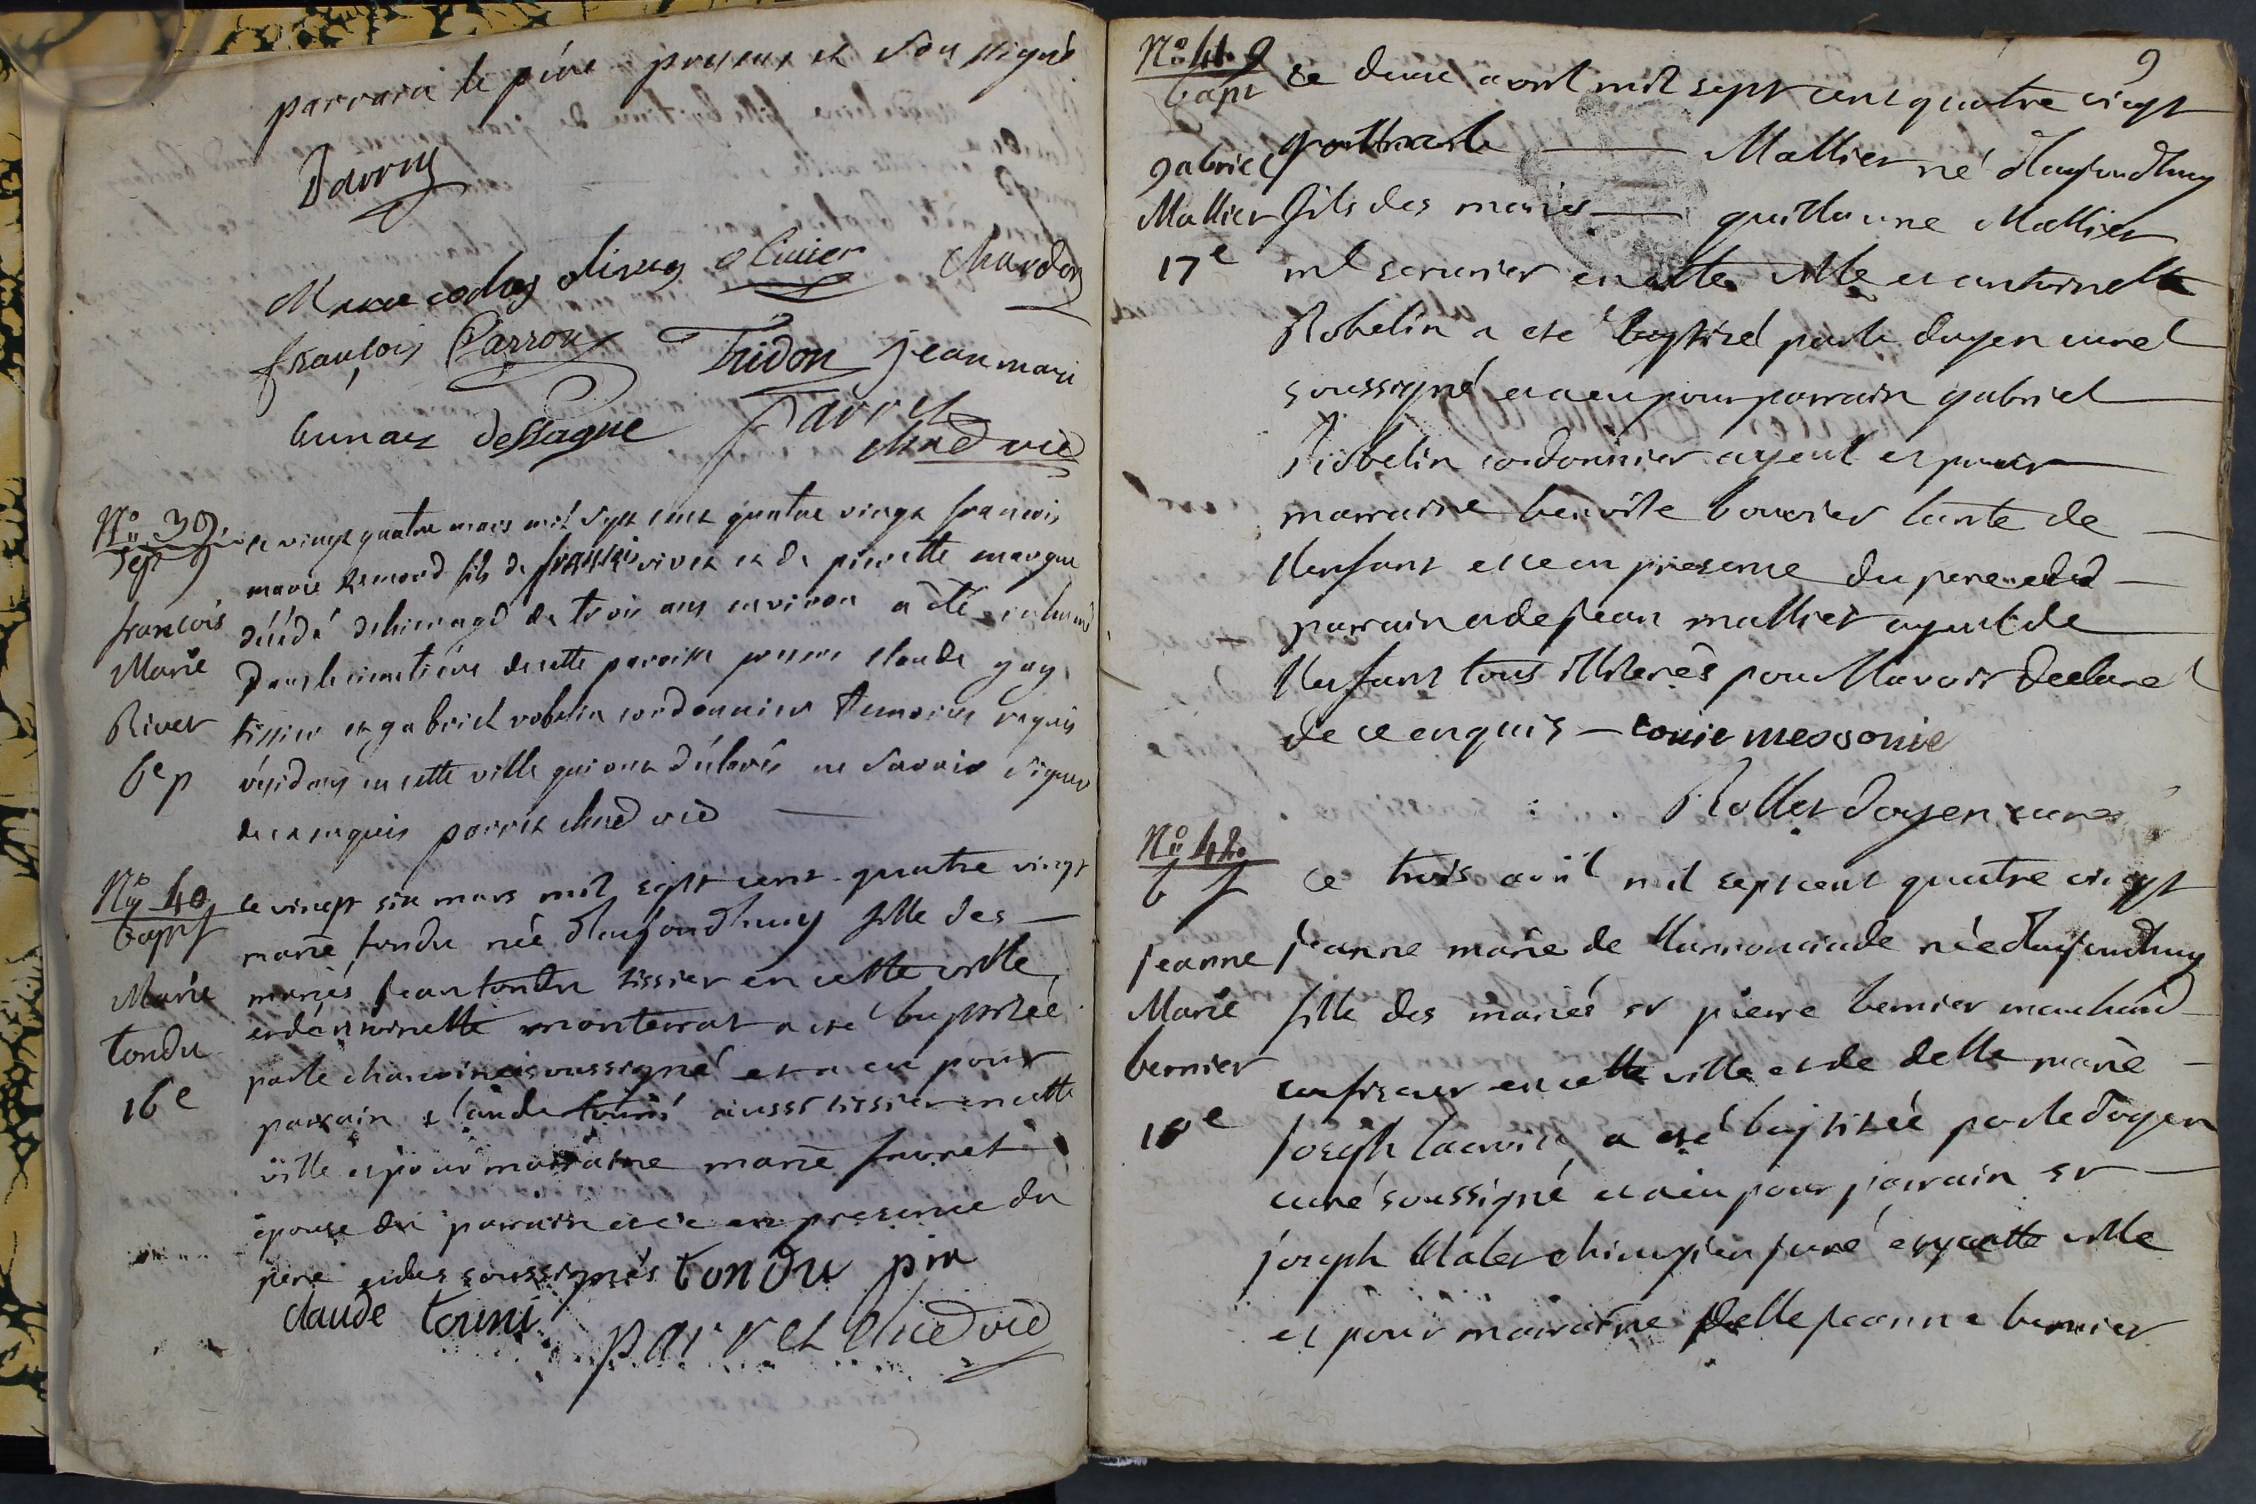 parrain le père present et soussigné
Davou
olivier chardon
françois Parron Tridon jean mari
Bunaz Dessagne
Parret chned vie
N° 39.
Sep
françois
Marie
Rivet
6e p
ce vingt quatre mars mil sept cent quatre vingt françois
marie remond fils de françois rivet et de pierrette
décédé âgé de trois ans environ a été inhumé
dans le cimetière de cette paroisse presens claude gay
tissier et gabriel robelin cordonnier temoins requis
résidans en cette ville qui ont déclarés ne savoir signer
de ce enquis parret chned vie
N° 40
bapt
Marie
tondu
16e
ce vingt six mars mil sept cent quatre vingt
marie tondu née d'aujourd'huy fille des
mariés jean tondu tissier en cette ville
et d'antoinette monterrat a été baptisée
par le chanoine soussigné et a eu pour
parrain claude aussi tissier en cette
ville et pour marraine marie favret
épouse du parrain et ce en presence du
pere et des soussignés tondu
claude touni
parret chned vie
9
N° 41.
bapt
gabriel
Mallier
17e
ce deux avril mil sept cent quatre vingt
Mallier né d'aujourd'huy
fils des mariés guillaume Mallier
md serrurier en cette ville et antoinette
Robelin a eté baptisé par le doyen curé
soussigné et a eu pour parrain gabriel
Robelin cordonnier ayeul et pour
marraine benoite bouvier tante de
l'enfant et ce en presence du pere et du
parrain et de jean mallier ayeul de
l'enfant tous illiterés pour l'avoir declaré
de ce enquis – messonie
Rollet doyen curé
N° 42.
b f
jeanne
Marie
bernier
18e
ce trois avril mil sept cent quatre vingt
jeanne marie de née d'aujourd'huy
fille des mariés sr pierre bernier marchand
confiseur en cette ville et de delle marie
joseph lacroix a eté baptisée par le doyen
curé soussigné et a eu pour parrain sr
joseph chirurgien juré en cette ville
et pour marraine delle jeanne bernier